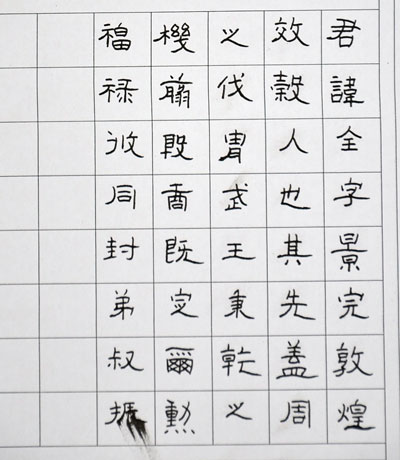 君諱全字景完敦煌
效穀人也其先蓋周
之伐胄武王秉乾之
機翦殷商既定爾勳
福禄攸同封弟叔振